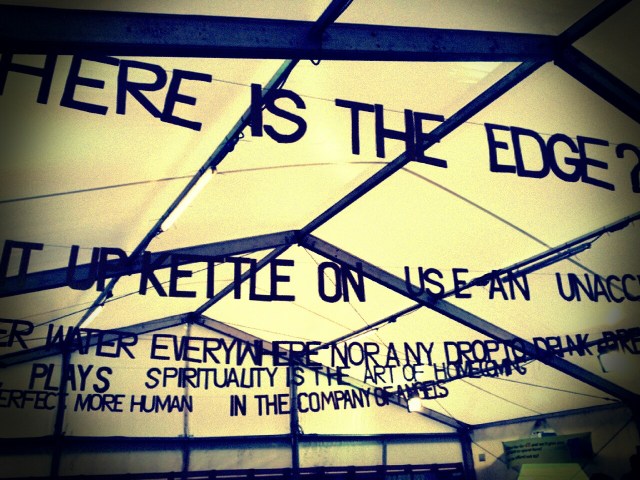 HERE IS THE EDGE?
IT UP KETTLE ON USE AN UNACC
ER WATER EVERYWHERE NOR ANY DROP TO DRINK PRE
PLAYS SPIRITUALITY IS THE ART OF HOMECOMING
ERFECT MORE HUMAN IN THE COMPANY OF ANGELS